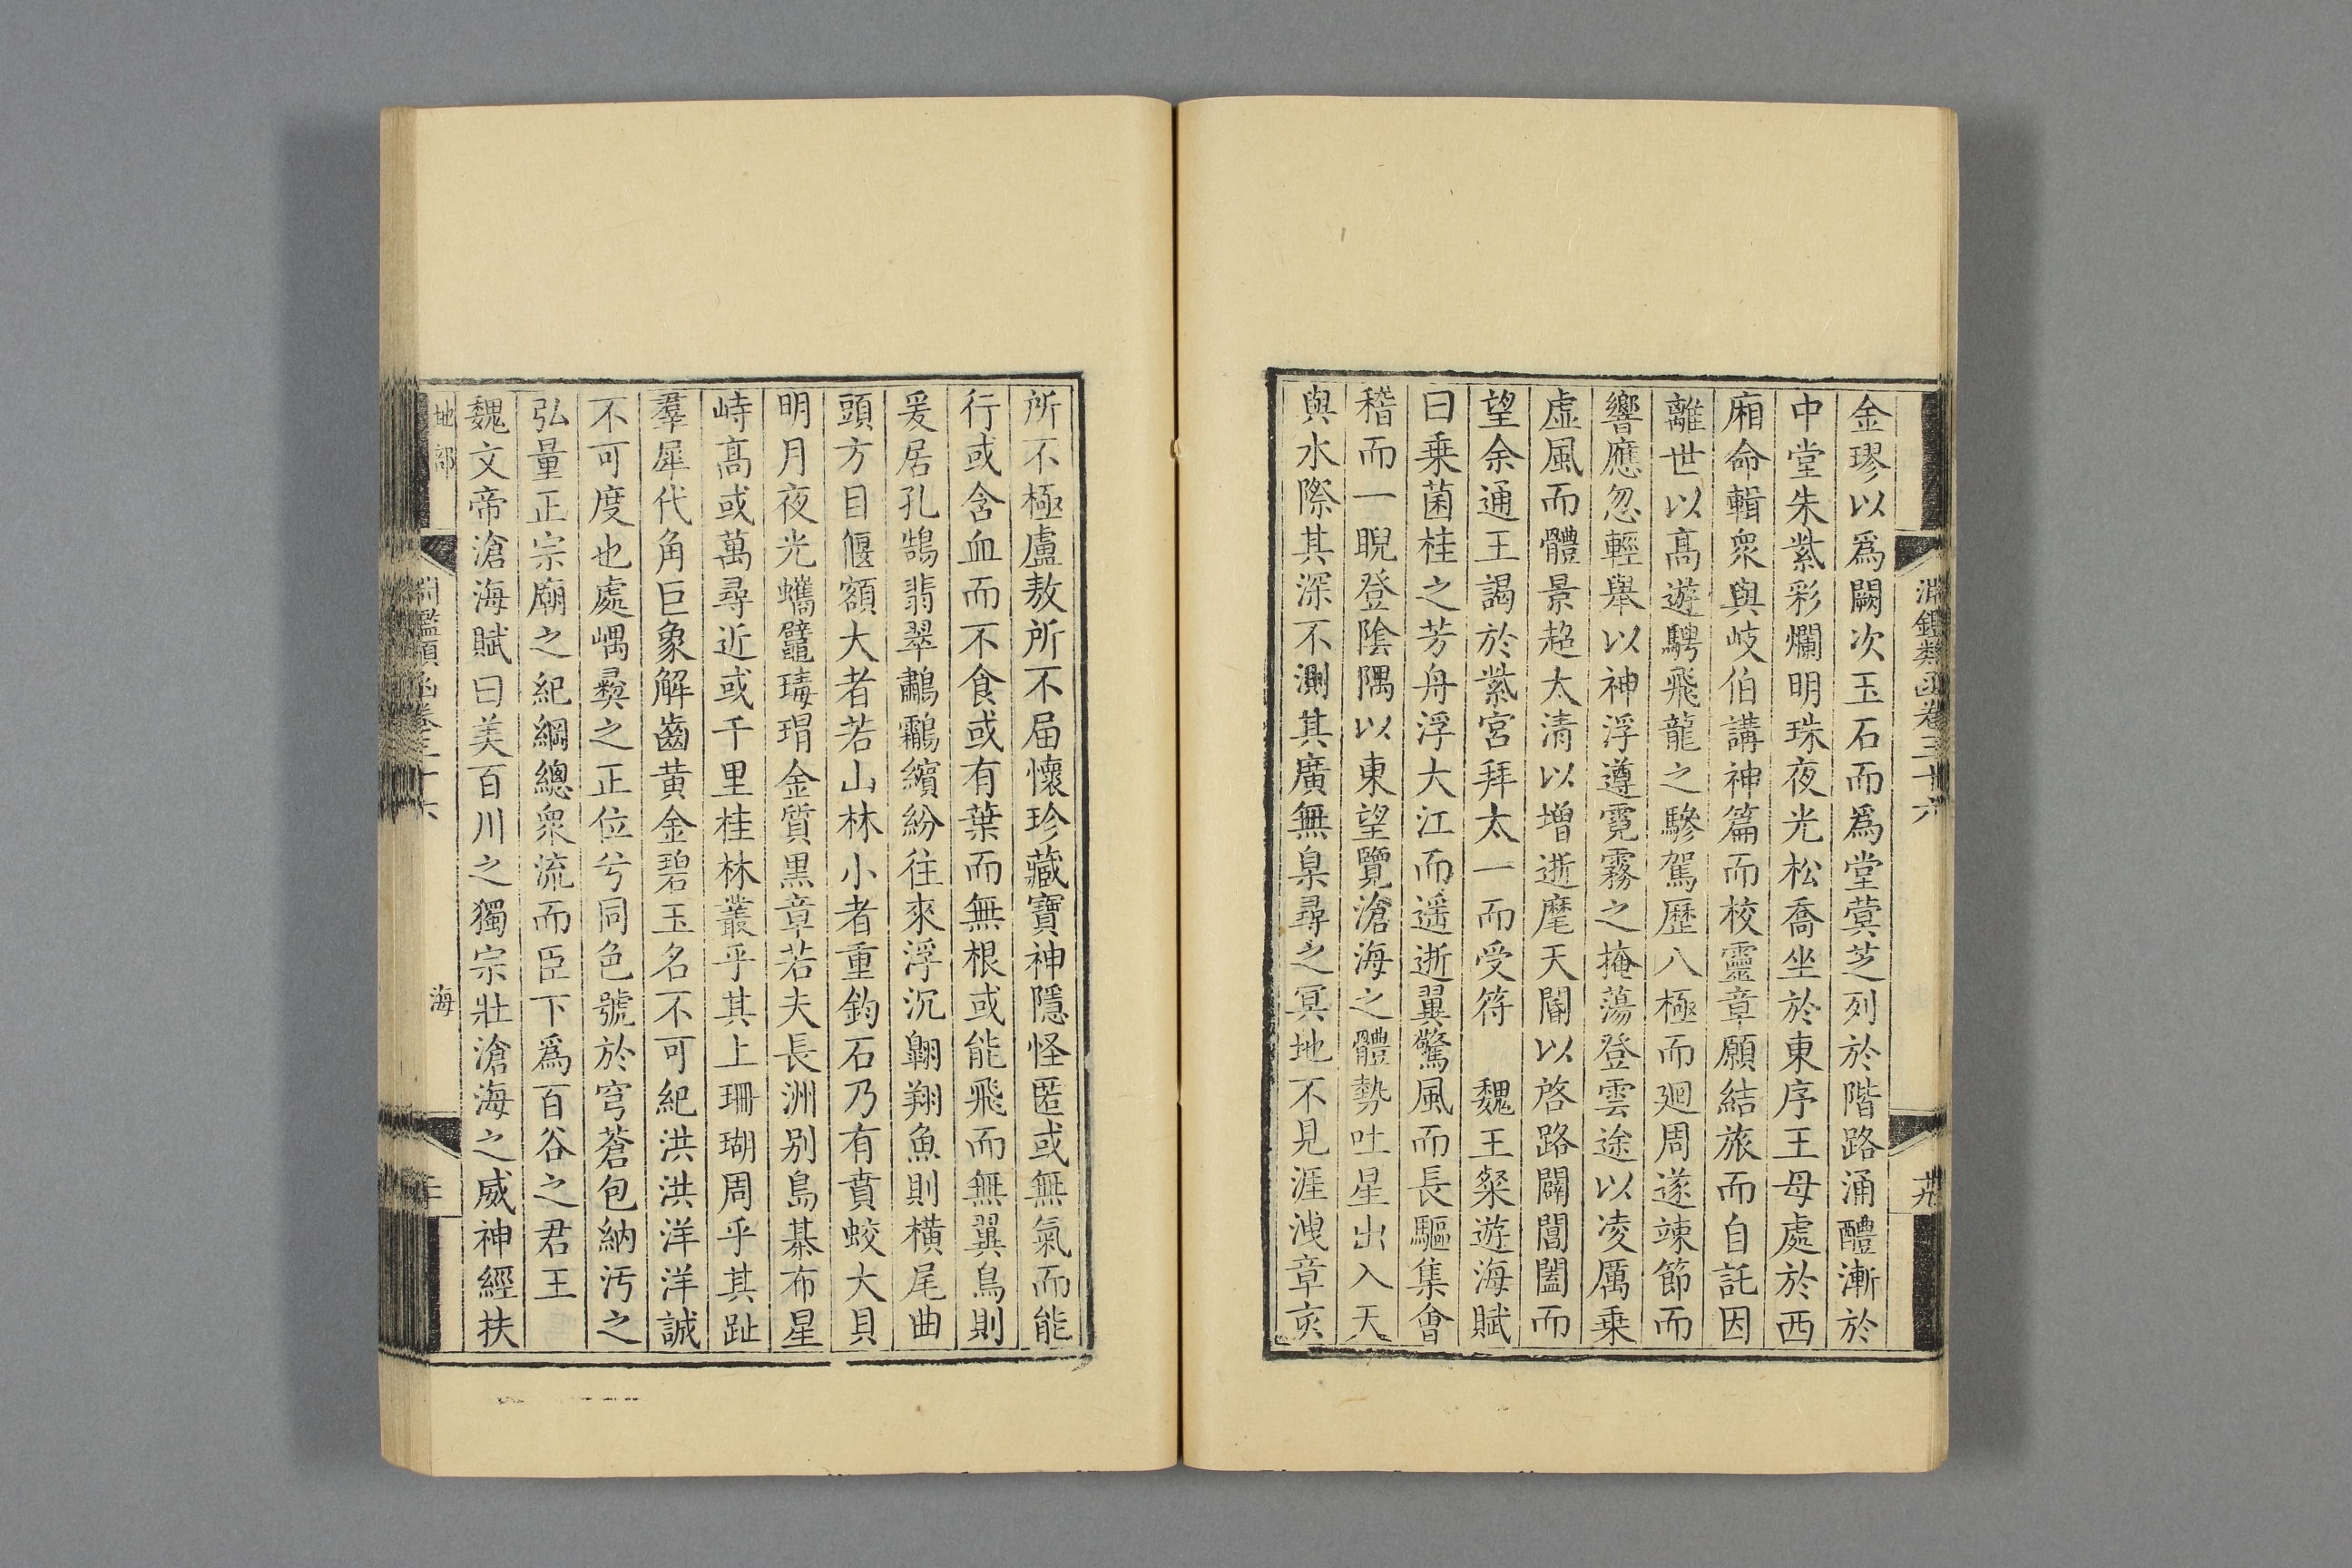 淵鑑類函卷三十六
金璆以爲闕次玉石而爲堂蓂芝列於階路涌醴漸於
中堂朱紫彩爛明珠夜光松喬坐於東序王母處於西
廂命韓衆與岐伯講神篇而校靈章願結旅而自託因
離世以高遊騁飛龍之驂駕歷八極而廻周遂竦節而
響應忽輕舉以神浮遵霓霧之掩蕩登雲途以凌厲乗
虚風而體景超太清以增逝麾天閽以啓路闢閶闔而
望余通王謁於紫宮拜太一而受符　魏王粲遊海賦
曰乗菌桂之芳舟浮大江而遥逝翼驚風而長驅集會
稽而一睨登陰隅以東望覽滄海之體勢吐星出入天
與水際其深不測其廣無臬尋之冥地不見涯洩章亥
所不極盧敖所不届懷珍藏寶神隱怪匿或無氣而能
行或含血而不食或有葉而無根或能飛而無翼鳥則
爰居孔鵠翡翠鷫鸘繽紛往來浮沉翺翔魚則橫尾曲
頭方目偃額大者若山林小者重鈞石乃有賁蛟大貝
明月夜光蠵鼊瑇瑁金質黑章若夫長洲别島棊布星
峙高或萬尋近或千里桂林叢乎其上珊瑚周乎其趾
羣犀代角巨象解齒黄金碧玉名不可紀洪洪洋洋誠
不可度也處嵎彛之正位兮同色號於穹蒼包納汚之
弘量正宗廟之紀綱總衆流而臣下爲百谷之君王
魏文帝滄海賦曰美百川之獨宗壯滄海之威神經扶
地部
海